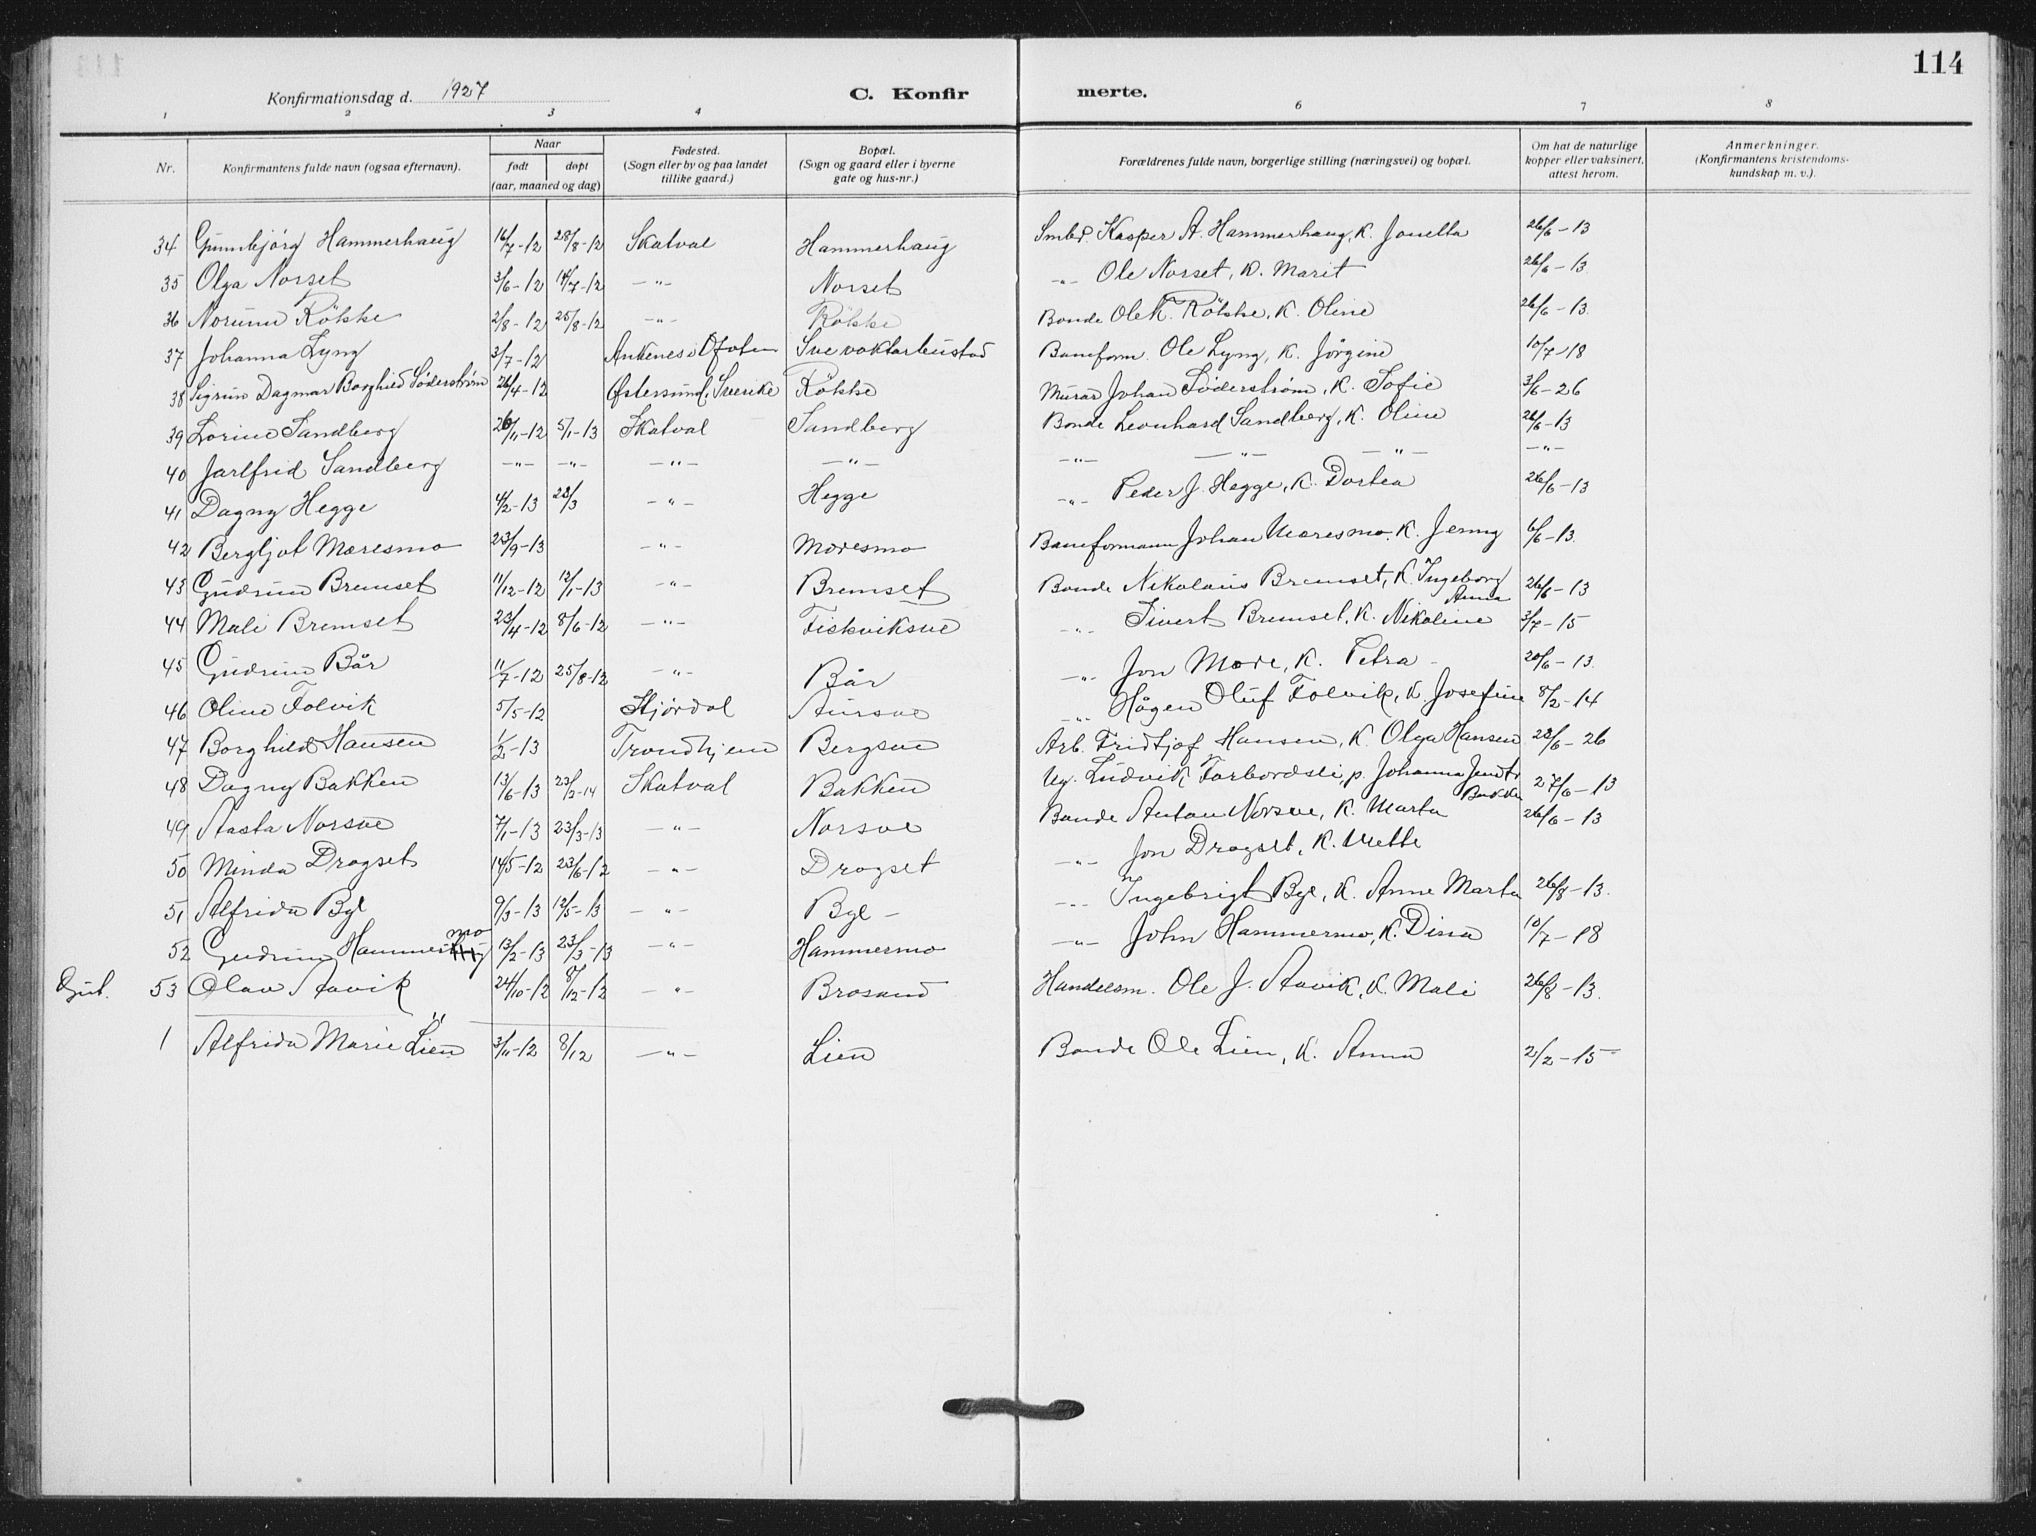 114
Konfirmationsdag d. 1927 C. Konfirmerte.
1 2 3 4 6 7 8
Nr. Konfirmantens fulde navn (ogsaa efternavn). Naar født døpt (aar, maaned og dag) Fødested. (Sogn eller by og paa landet tillike gaard.) Bopæl. (Sogn og gaard eller i byerne gate og hus-nr.) Forældrenes fulde navn, borgerlige stilling (næringsvei) og bopæl. Om hat de naturlige kopper eller vaksinert, attest herom. Anmerkninger. (Konfirmantens kristendomskundskap m. v.).
34 Gunnbjörg Hammerhaug 16/7-12 28/8-12 Skatval Hammerhaug Smbr. Kasper A. Hammerhaug, K. Jonetta 26/6-13
35 Olga Norset 3/6-12 14/7-12 -"- Norset -"- Ole Norset, K. Marit 26/6-13
36 Norunn Røkke 2/8-12 25/8-12 -"- Røkke Bonde Ole K. Røkke, K. Oline 26/6-13
37 Johanna Lyng 3/7-12 Ankenes i Ofoten Sve vokterbustad Baneform. Ole Lyng, K. Jørgine 10/7-18
38 Sigrun Dagmar Borghild Söderström 26/4-12 Østersund, Sverike Røkke Murar Johan Söderström, K. Sofie 3/6-26
39 Lorine Sandberg 26/11-12 5/1-13 Skatval Sandberg Bonde Leonhard Sandberg, K. Oline 26/6-13
40 Jarlfrid Sandberg -"- -"- -"- -"- -"- -"- -"- -"-
41 Dagny Hegge 4/2-13 28/3 -"- Hegge -"- Peder J. Hegge, K. Dortea 26/6-13
42 Bergljot Mæresmo 23/9-13 -"- Moresmo Baneformann Johan Moresmo, K. Jenny 6/6-13
43 Gudrun Bremset 11/12-12 12/1-13 -"- Bremset Bonde Nikolaus Bremset, K. Ingeborg Anna 26/6-13
44 Mali Bremset 23/4-12 8/6-12 -"- Fiskviksve -"- Sivert Bremset, K. Nikoline 3/7-15
45 Gudrun Bår 11/7-12 25/8-12 -"- Bår -"- Jon Mære, K. Petra - 20/6-13
46 Oline Folvik 5/5-12 Stjørdal Aursve -"- Hågen Oluf Folvik, K. Josefine 8/2-14
47 Borghild Hansen 1/2-13 Trondhjem Bergsve Arb. Fridtjof Hansen, K. Olga Hansen 28/6-26
48 Dagny Bakken 13/6-13 23/2-14 Skatval Bakken Ug. Ludvik Forbordsli, p. Johanna Jendt. Bakken 27/6-13
49 Aasta Norsve 7/1-13 23/3-13 -"- Norsve Bonde Anton Norsve, K. Marta 26/6-13
50 Minda Drogset 14/5-12 23/6-12 -"- Drogset -"- Jon Drogset, K. Mette
51 Alfrida Bye 9/3-13 12/5-13 -"- Bye - -"- Ingebrigt Bye, K. Anne Marta 26/8-13
52 Gudrun Hammermo 13/2-13 23/3-13 -"- Hammermo -"- John Hammermo, K. Dina 10/7-18
Gut. 53 Olav Aavik 24/10-12 8/12-12 -"- Brosand Handelsm. Ole J. Aavik, K. Mali 26/8-13
1 Alfrida Marie Lien 3/11-12 8/12 -"- Lien Bonde Ole Lien, K. Anna 2/2-15